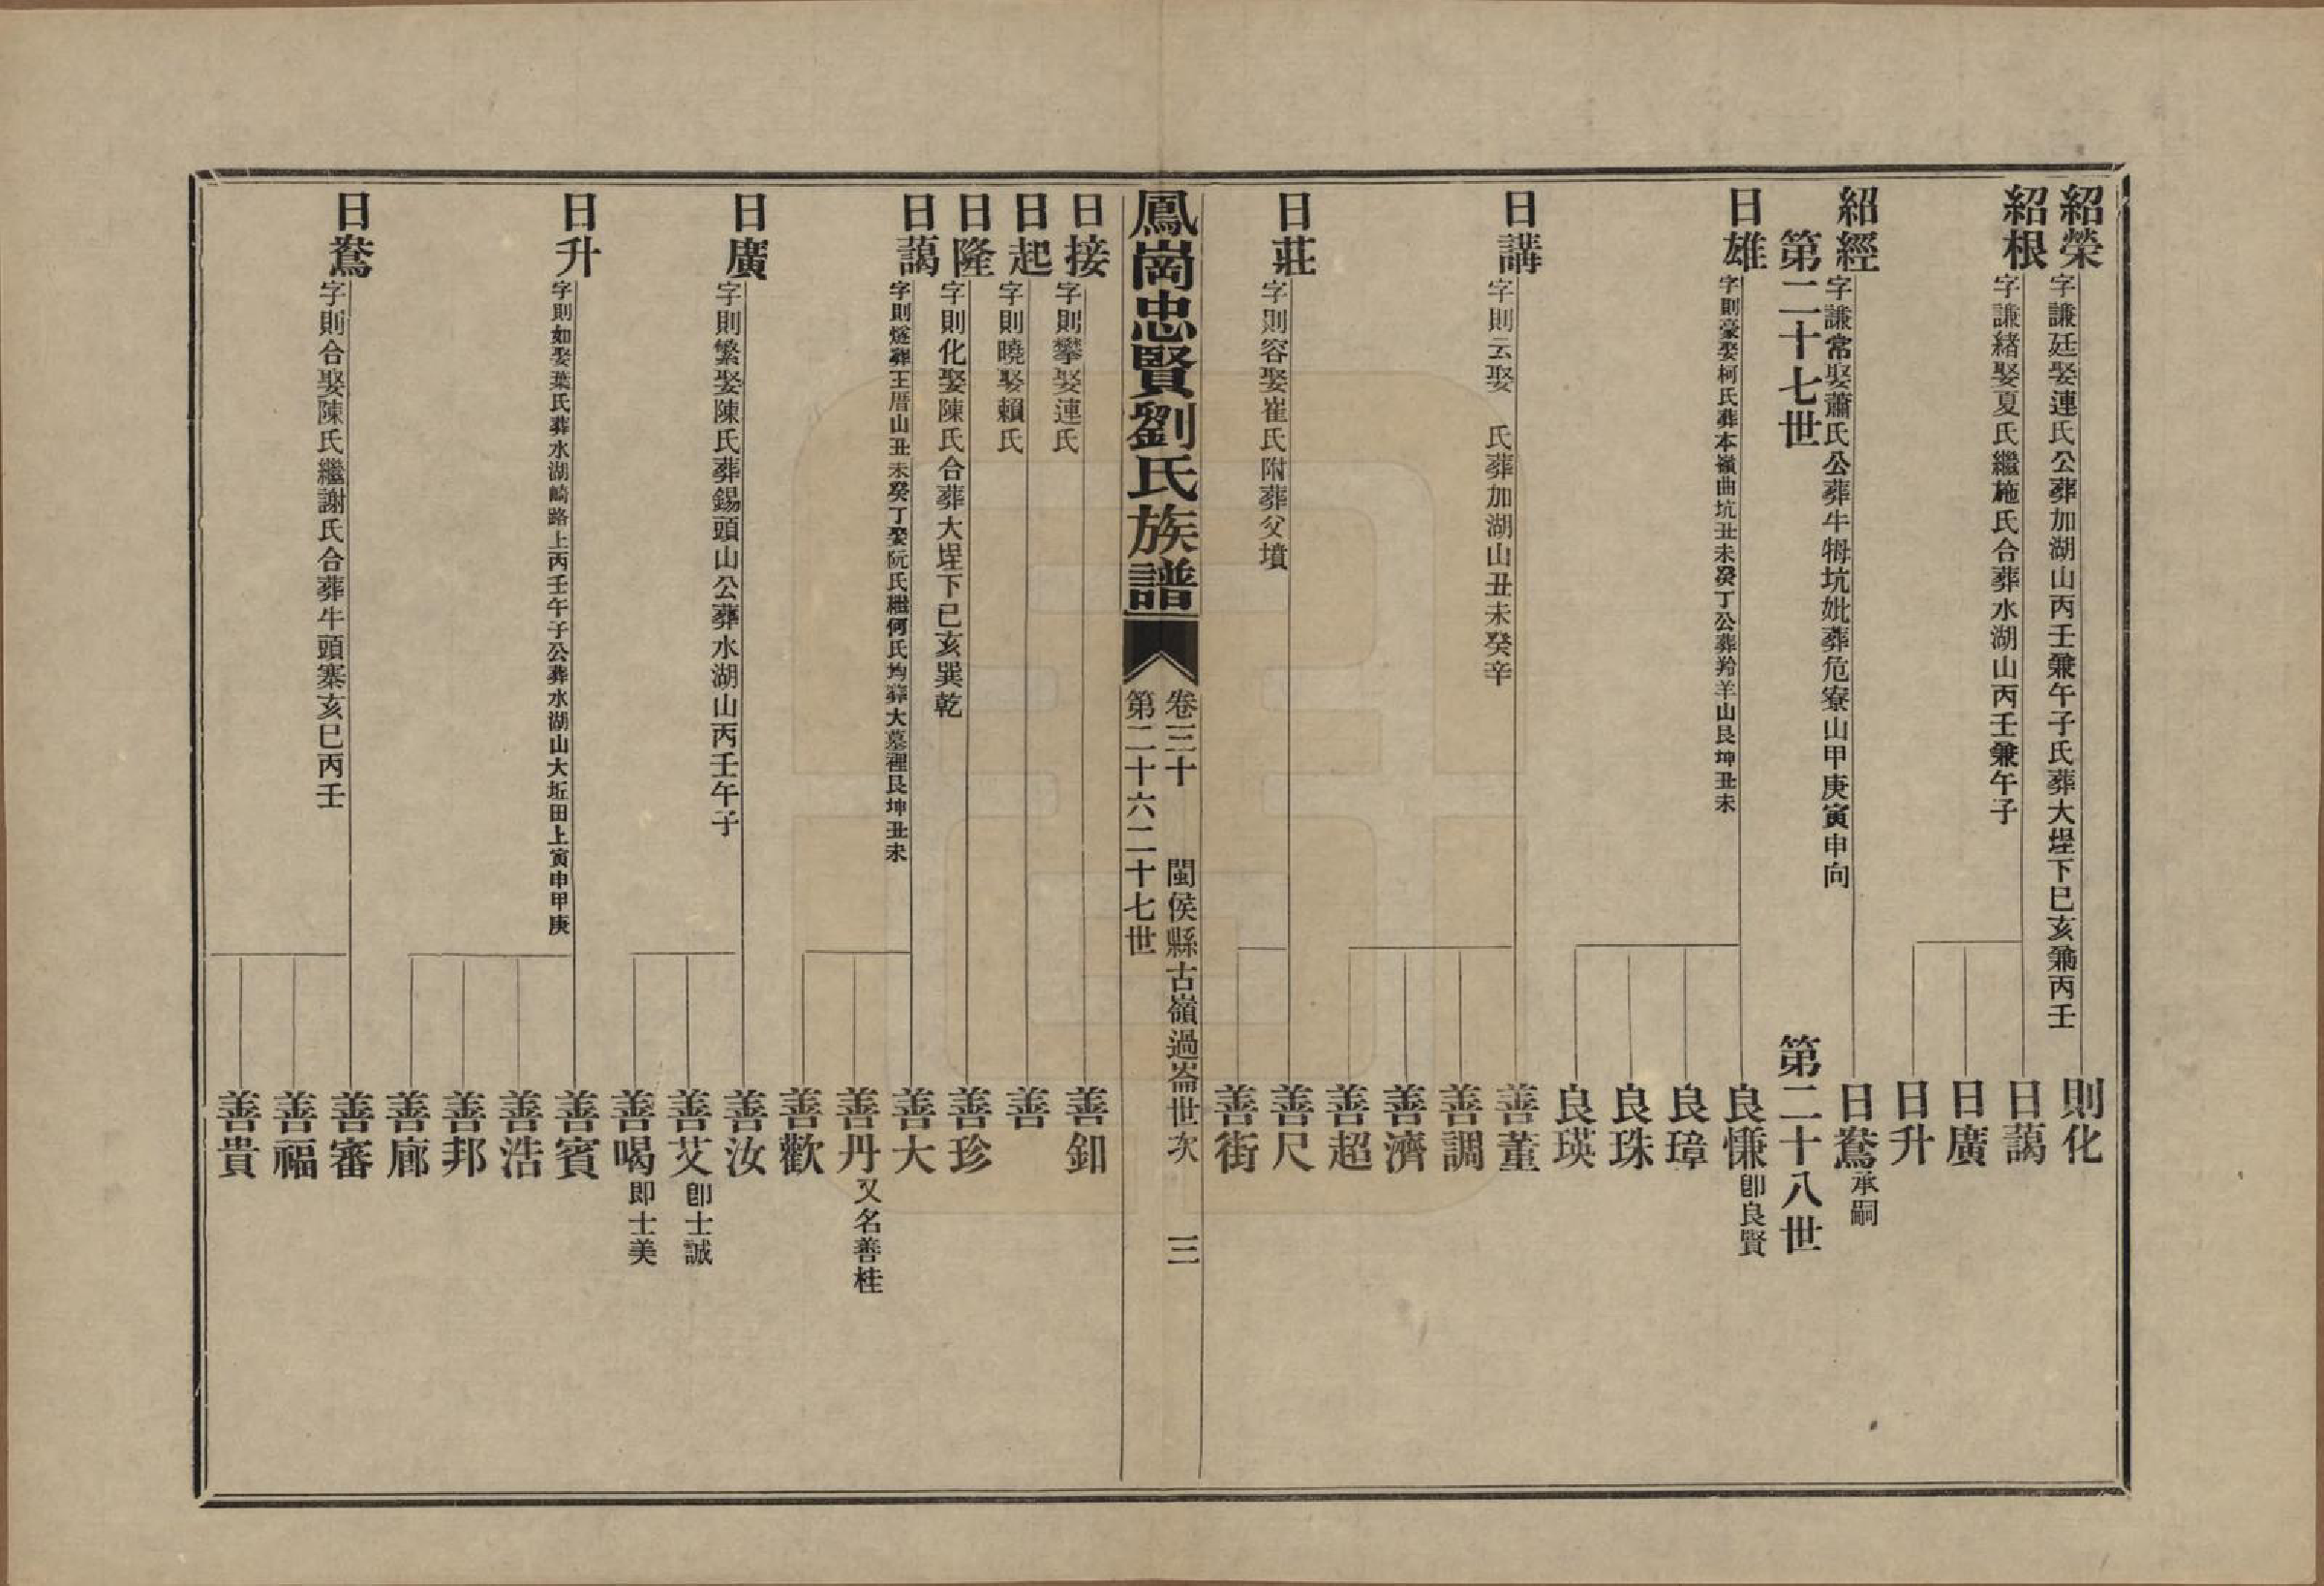 紹榮 字謙廷娶連氏公葬加湖山丙壬兼午子氏葬大埕下巳亥兼丙壬 則化
紹根 字謙緒娶夏氏繼施氏合葬水湖山丙壬兼午子 日藹
日廣
日升
紹經 字謙常娶蕭氏公葬牛牳坑妣葬危寮山甲庚寅申向 日鴦承嗣
第二十七世 第二十八世
日雄 字則豪娶柯氏葬本嶺曲坑丑未癸丁公葬羚羊山艮坤丑未 良慊卽良賢
良璋
良珠
良瑛
日講 字則云娶 氏葬加湖山丑未癸辛 善董
善調
善濟
善超
日莊 字則容娶崔氏附葬父墳 善尺
善街
鳳崗忠賢劉氏族譜 卷三十 閩侯縣古嶺過崙世次 三
第二十六二十七世
日接 字則攀娶連氏 善釦
日起 字則曉娶賴氏 善
日隆 字則化娶陳氏合葬大埕下巳亥巽乾 善珍
日藹 字則燧葬王厝山丑未癸丁娶阮氏繼何氏均葬大墓裡艮坤丑未 善大
善丹又名善桂
善歡
日廣 字則繁娶陳氏葬錫頭山公葬水湖山丙壬午子 善汝
善艾卽士誠
善喝即士美
日升 字則如娶葉氏葬水湖崎路上丙壬午子公葬水湖山大坵田上寅申甲庚 善賓
善浩
善邦
善廊
日鴦 字則合娶陳氏繼謝氏合葬牛頭寨亥巳丙壬 善審
善福
善貴